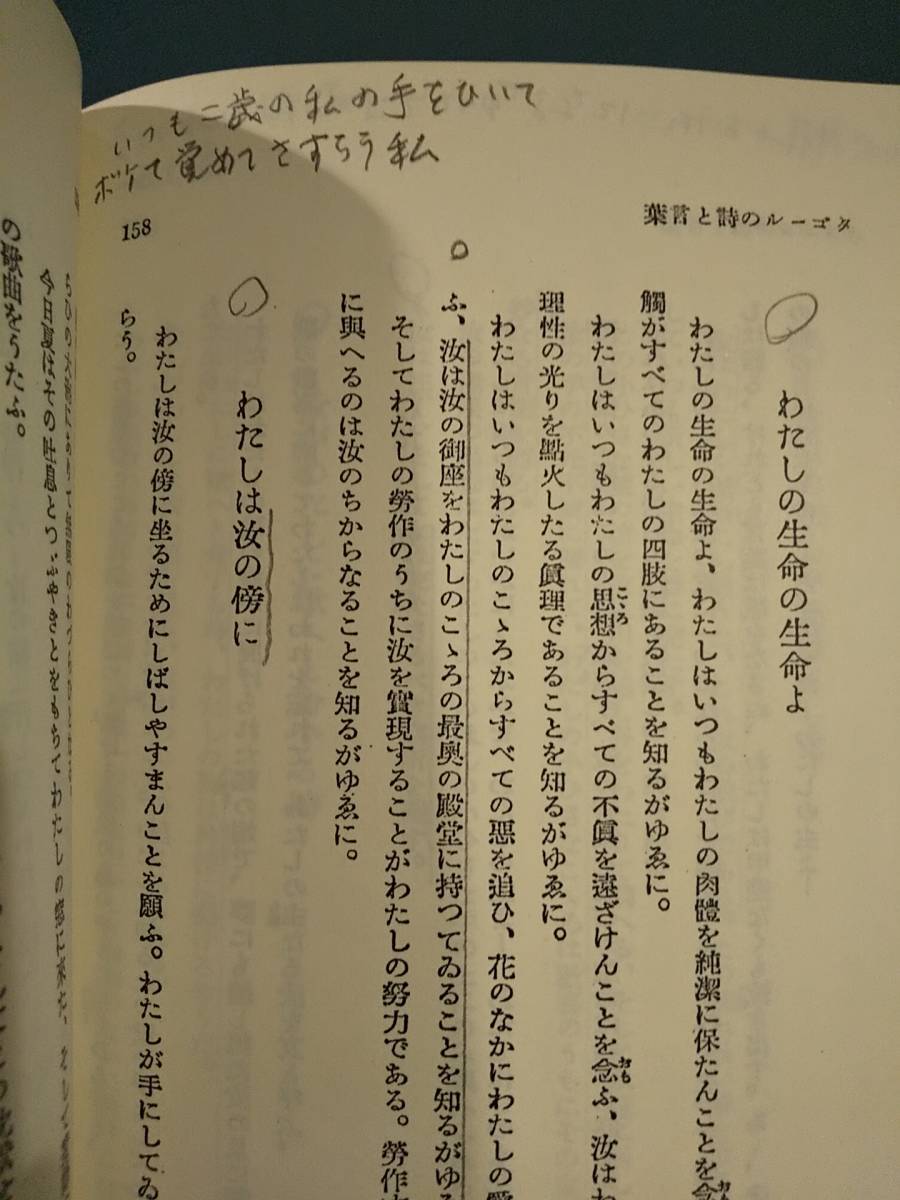 いつも二歳の私の手をひいて
ボケて覚めてさすらう私
タゴールの詩と言葉
158
わたしの生命の生命よ
わたしの生命の生命よ、わたしはいつもわたしの肉體を純潔に保たんことを念
觸がすべてのわたしの四肢にあることを知るがゆゑに。
わたしはいつもわたしの思想からすべての不眞を遠ざけんことを念ふ、汝はわ
理性の光りを點火したる眞理であることを知るがゆゑに。
わたしはいつもわたしのこゝろからすべての惡を追ひ、花のなかにわたしの愛
ふ、汝は汝の御座をわたしのこゝろの最奧の殿堂に持つてゐることを知るがゆゑ
そしてわたしの勞作のうちに汝を實現することがわたしの努力である。勞作
に與へるのは汝のちからなることを知るがゆゑに。
わたしは汝の傍に
わたしは汝の傍に坐るためにしばしやすまんことを願ふ。わたしが手にしてゐ
らう。
今日夏はその吐息とつぶやきとをもちてわたしの
の歌曲をうたふ。